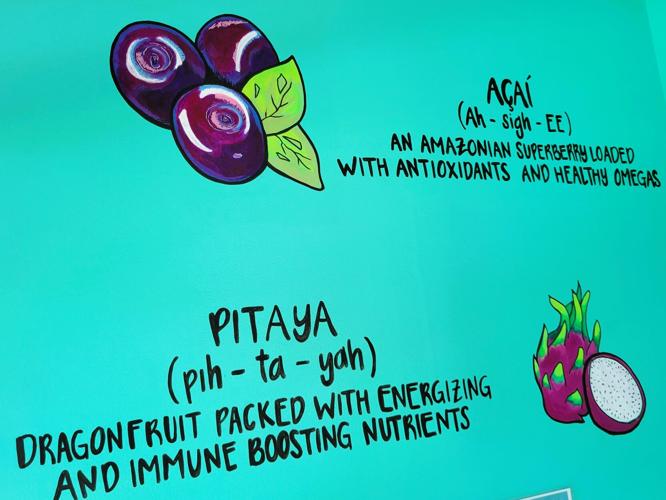 AÇAÍ
(Ah - sigh - EE)
AN AMAZONIAN SUPERBERRY LOADED
WITH ANTIOXIDANTS AND HEALTHY OMEGAS
PITAYA
(pih - ta - yah)
DRAGONFRUIT PACKED WITH ENERGIZING
AND IMMUNE BOOSTING NUTRIENTS